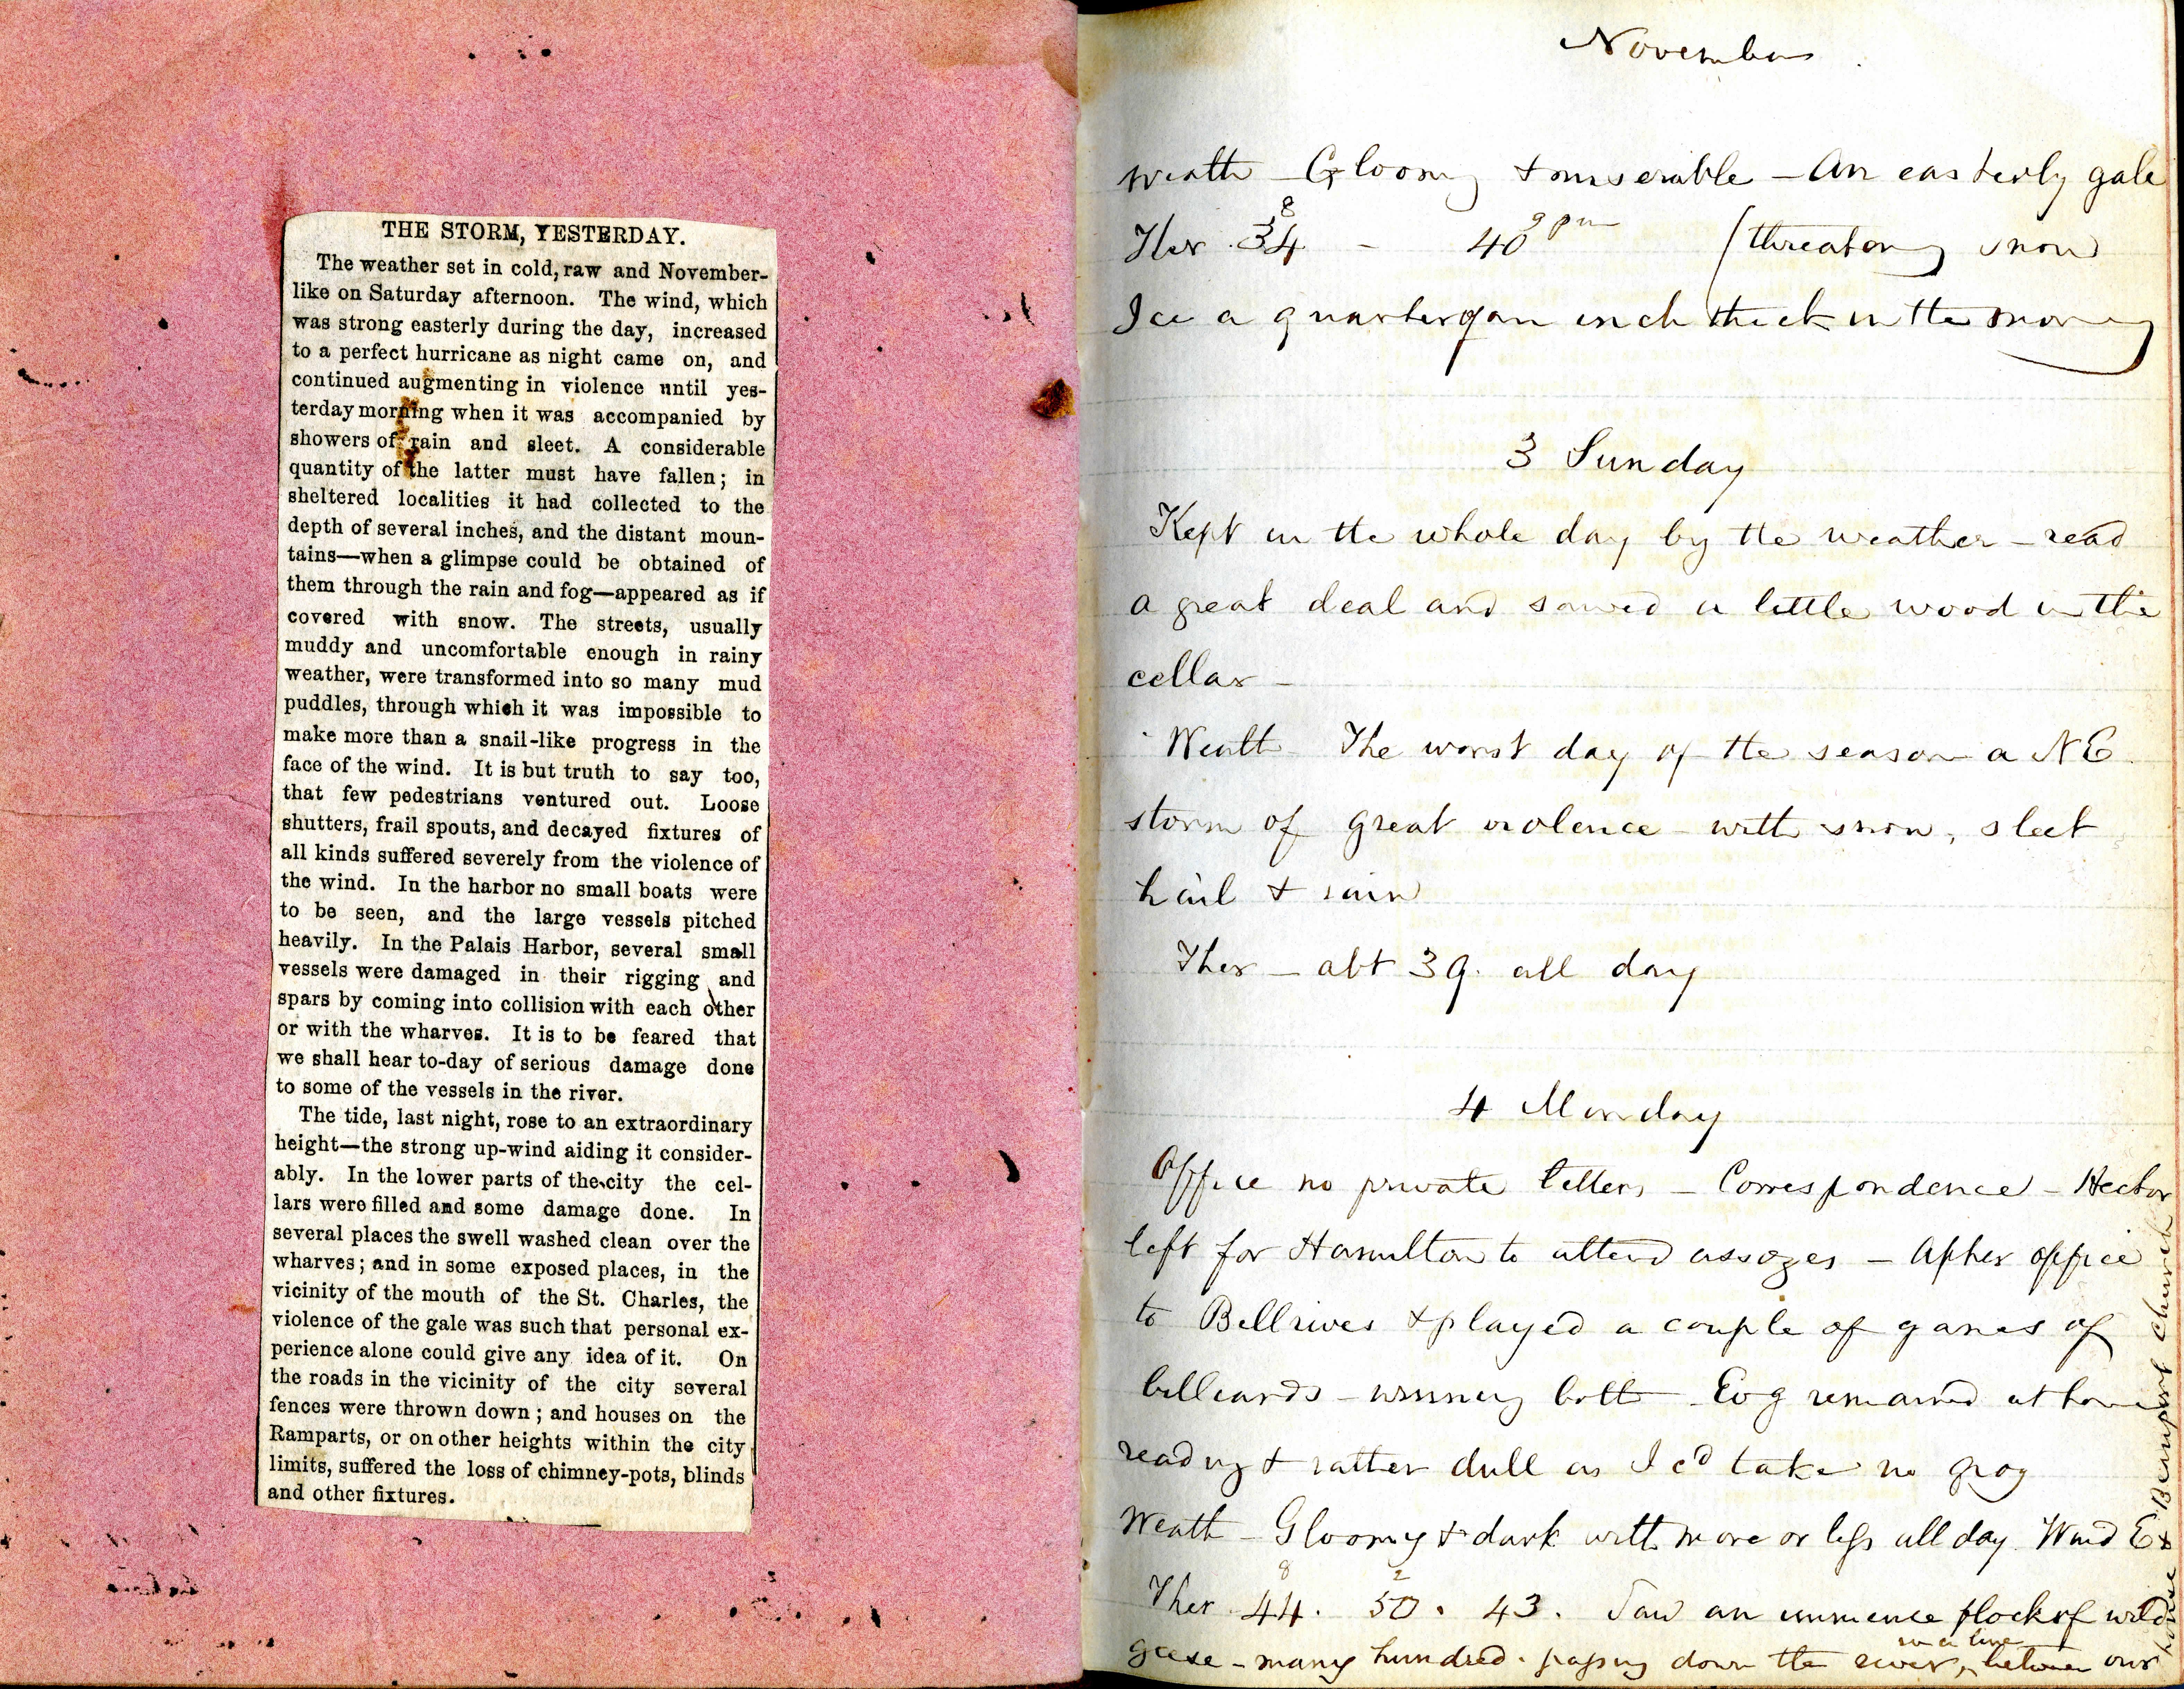 THE STORM, YESTERDAY.
The weather set in cold, raw and November-
like on Saturday afternoon. The wind, which
was strong easterly during the day, increased
to a perfect hurricane as night came on, and
continued augmenting in violence until yes-
terday morning when it was accompanied by
showers of rain and sleet. A considerable
quantity of the latter must have fallen; in
sheltered localities it had collected to the
depth of several inches, and the distant moun-
tains—when a glimpse could be obtained of
them through the rain and fog—appeared as if
covered with snow. The streets, usually
muddy and uncomfortable enough in rainy
weather, were transformed into so many mud
puddles, through which it was impossible to
make more than a snail-like progress in the
face of the wind. It is but truth to say too,
that few pedestrians ventured out. Loose
shutters, frail spouts, and decayed fixtures of
all kinds suffered severely from the violence of
the wind. In the harbor no small boats were
to be seen, and the large vessels pitched
heavily. In the Palais Harbor, several small
vessels were damaged in their rigging and
spars by coming into collision with each other
or with the wharves. It is to be feared that
we shall hear to-day of serious damage done
to some of the vessels in the river.
The tide, last night, rose to an extraordinary
height—the strong up-wind aiding it consider-
ably. In the lower parts of the city the cel-
lars were filled and some damage done. In
several places the swell washed clean over the
wharves; and in some exposed places, in the
vicinity of the mouth of the St. Charles, the
violence of the gale was such that personal ex-
perience alone could give any idea of it. On
the roads in the vicinity of the city several
fences were thrown down; and houses on the
Ramparts, or on other heights within the city
limits, suffered the loss of chimney-pots, blinds
and other fixtures.
November
Weath - Gloomy & miserable - An easterly gale
Ther. 34 8 - 40 9 pm (threatening snow
Ice a quarter of an inch thick in the morning
3 Sunday
Kept in the whole day by the weather - read
a great deal and sawed a little wood in the
cellar -
Weath - The worst day of the season a NE.
storm of great violence - with snow, sleet
hail & rain
Ther - abt 39. all day
4 Monday
Office no private letters - Correspondence - Hector
left for Hamilton to attend assozes - After office
to Bellrives & played a couple of games of
billiards - winning both - Evg remained at home
reading & rather dull as I cd take no grog
Weath - Gloomy & dark with more or less all day. Wind E
Ther 44 8. 50 2. 43. Saw an immence flock of wild
geese - many hundred. passing down the river, in a line between our
house & Beauport Church